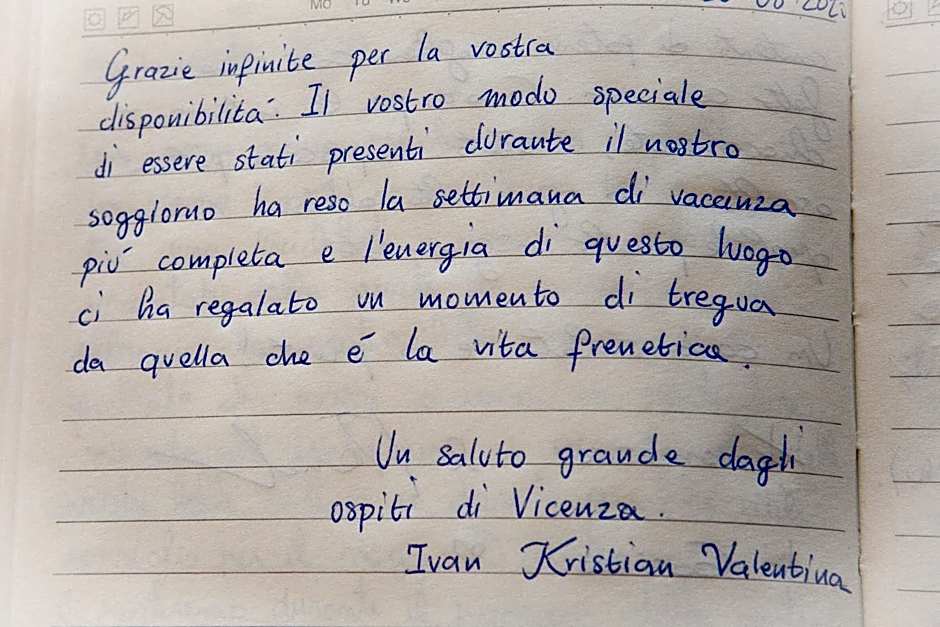 Mo
Grazie infinite per la vostra
disponibilità. Il vostro modo speciale
di essere stati presenti durante il nostro
soggiorno ha reso la settimana di vacanza
più completa e l'energia di questo luogo
ci ha regalato un momento di tregua
da quella che é la vita frenetica.
Un saluto grande dagli
ospiti di Vicenza.
Ivan Kristian Valentina